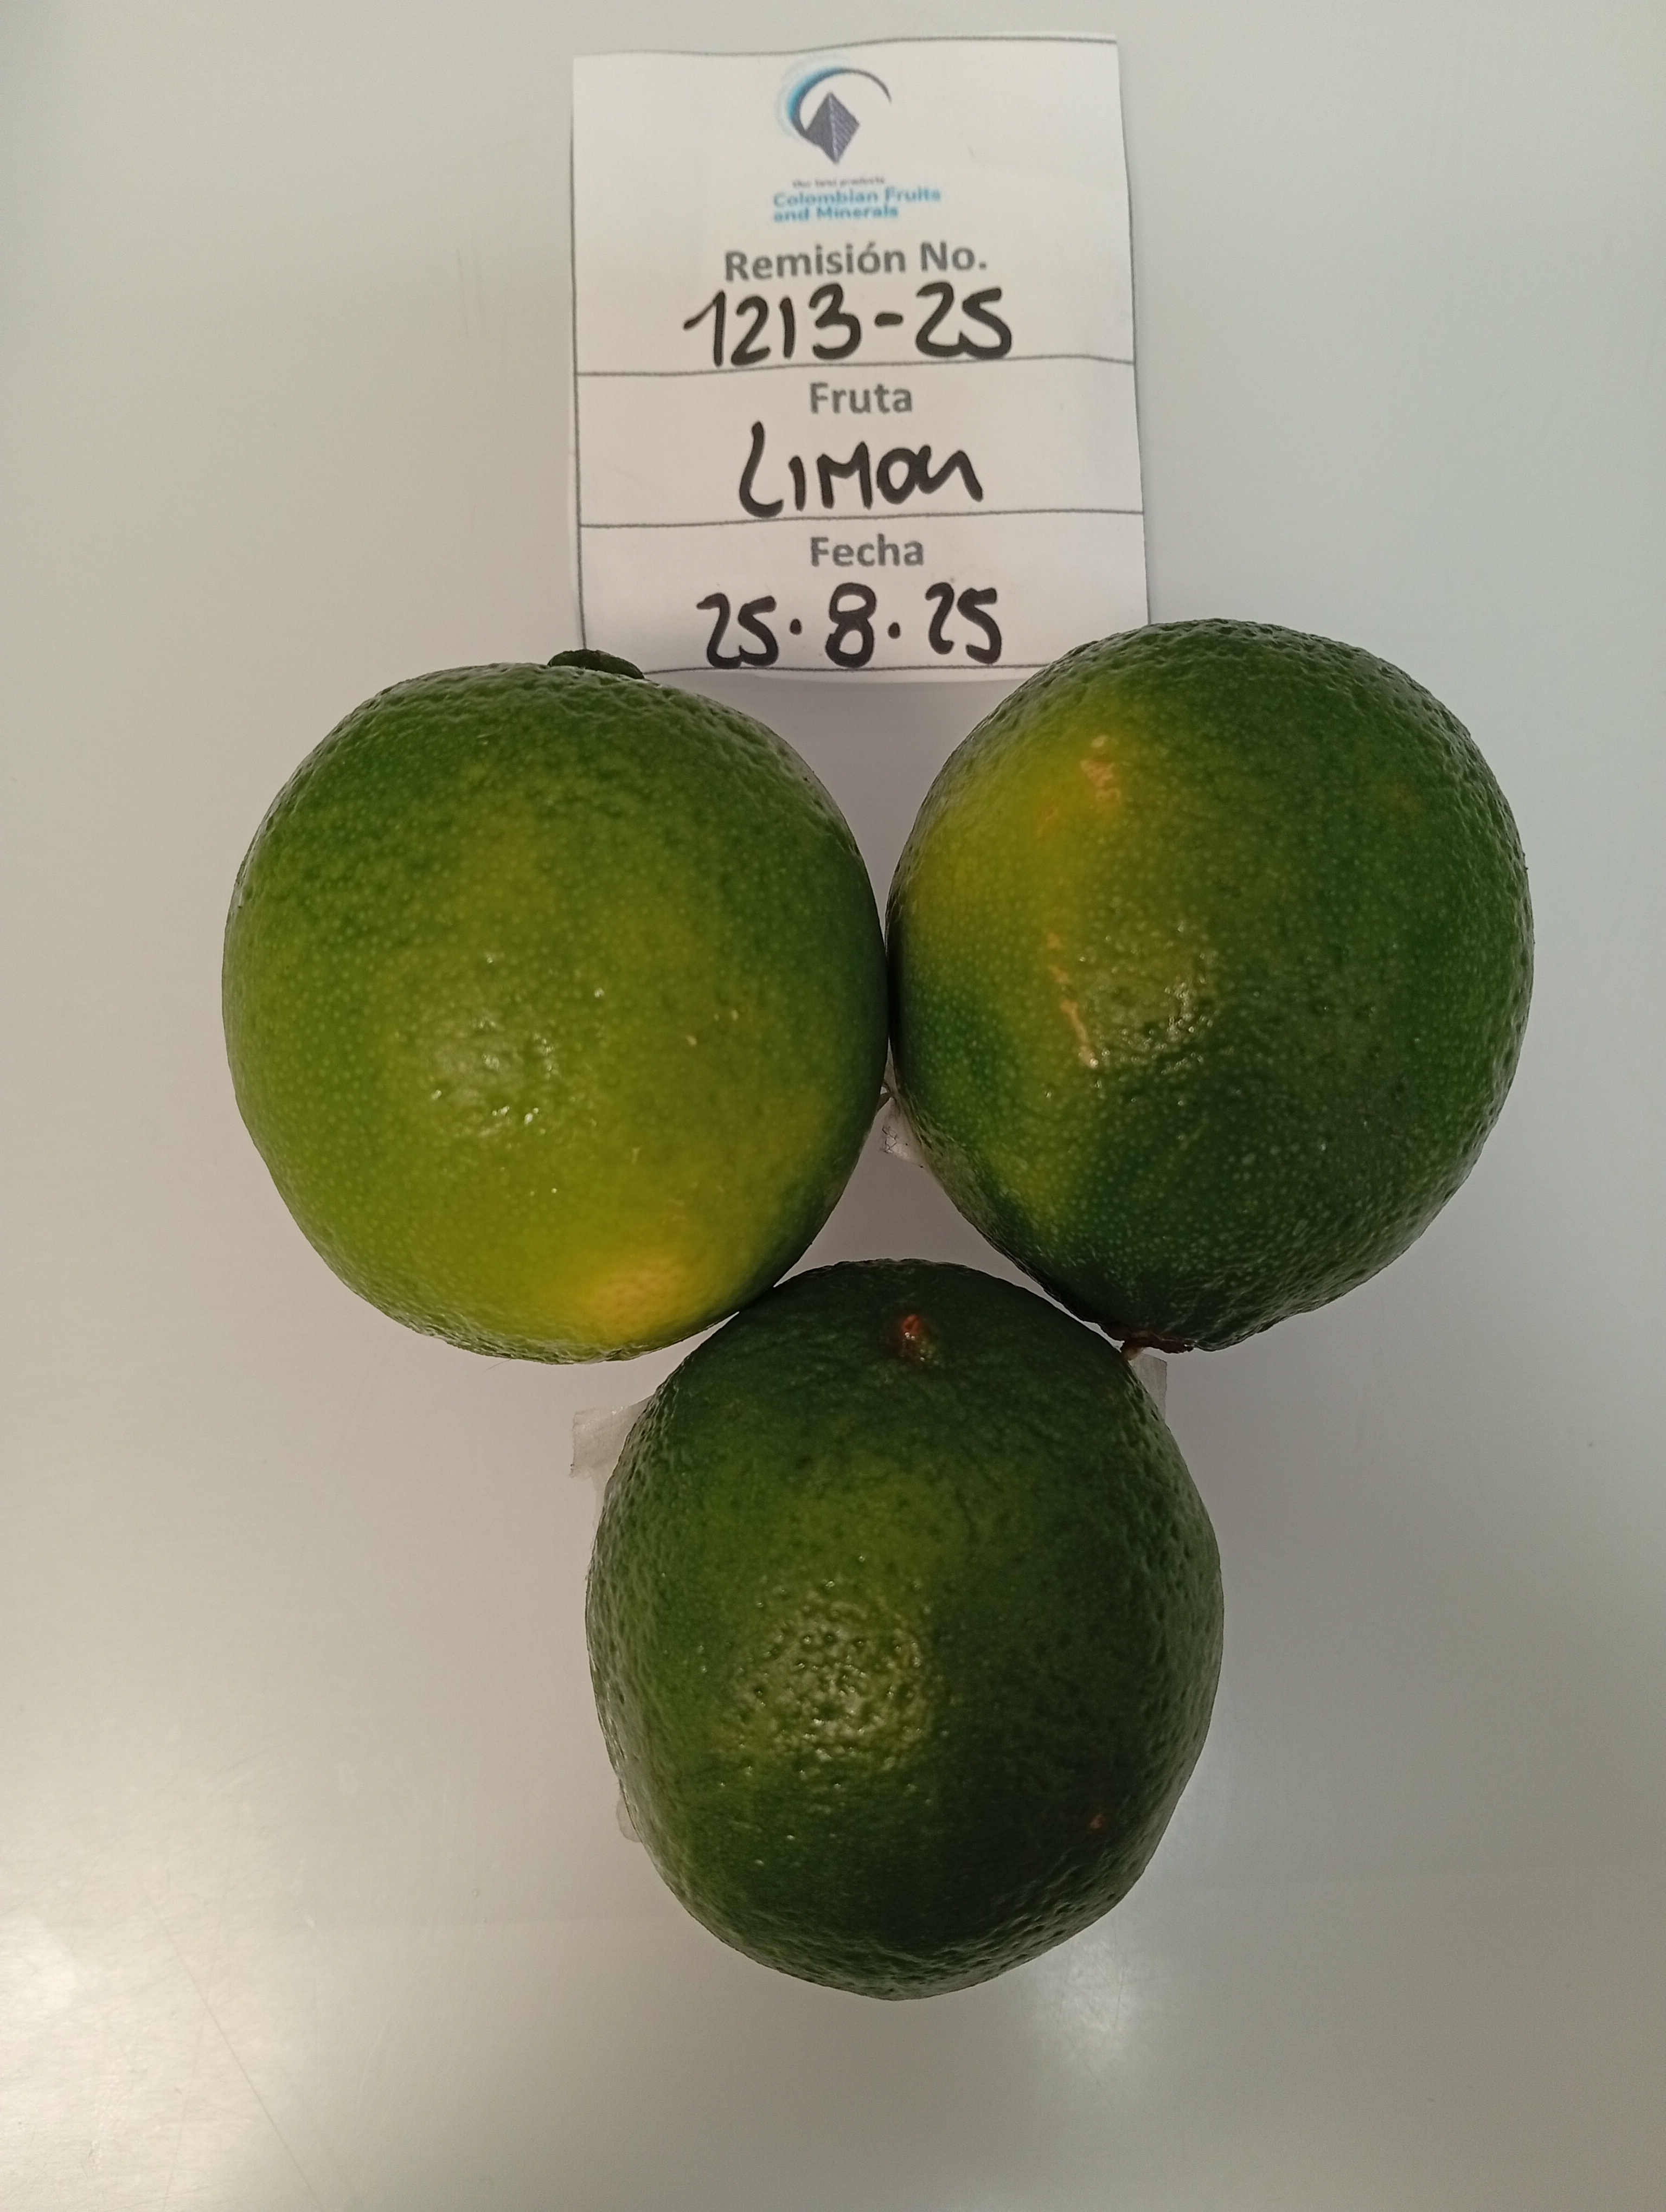 Our best products
Colombian Fruits
and Minerals
Remisión No.
1213-25
Fruta
LIMON
Fecha
25.8.25